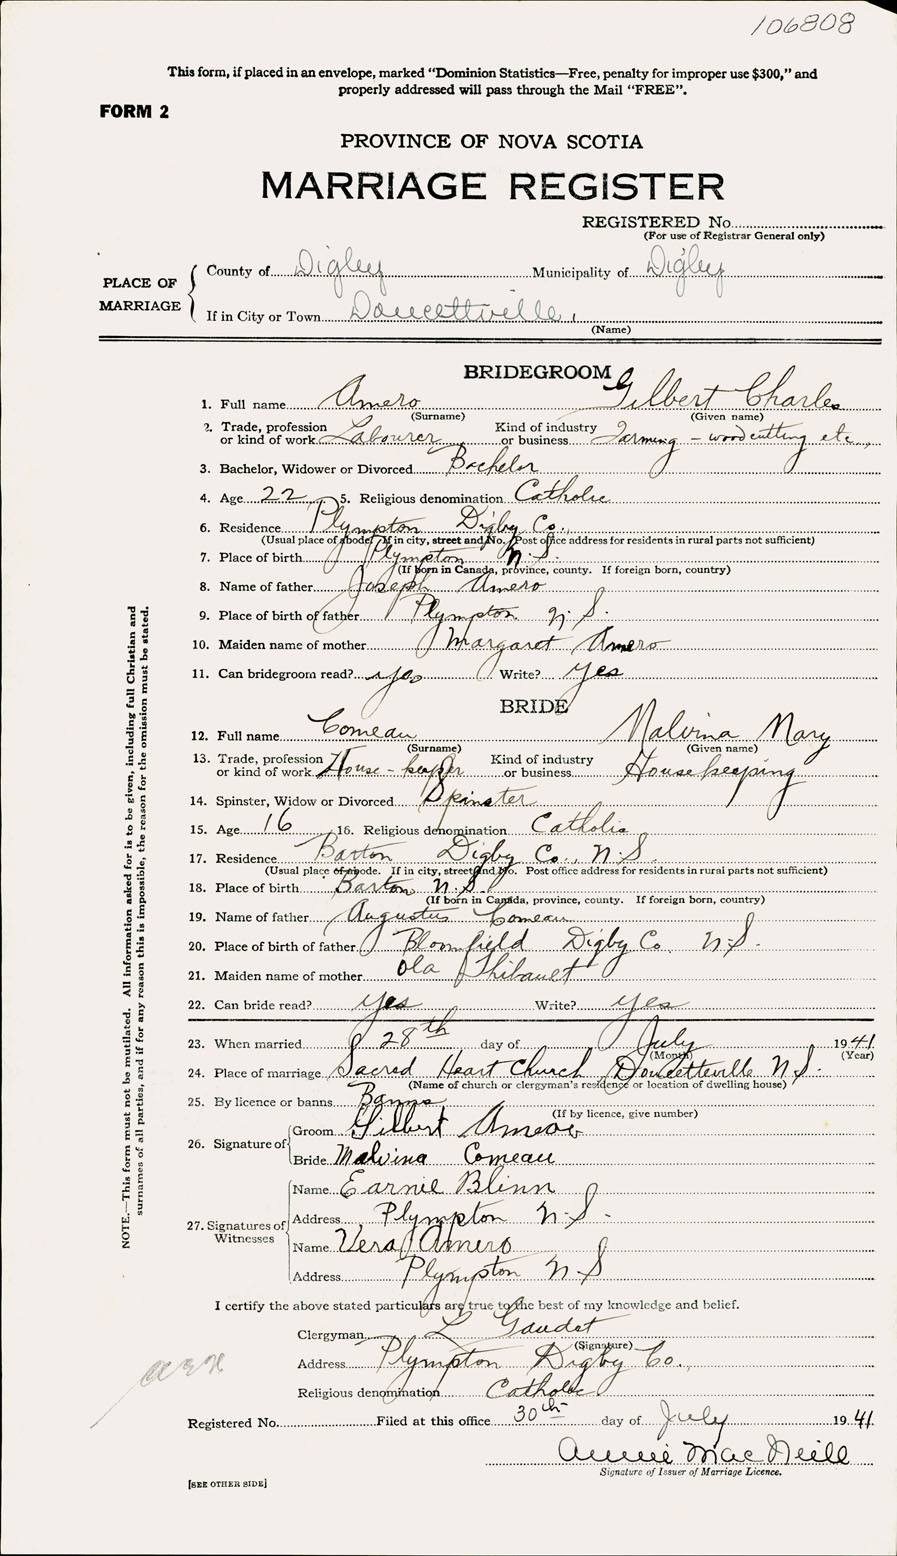 106808
This form, if placed in an envelope, marked "Dominion Statistics—Free, penalty for improper use $300," and
properly addressed will pass through the Mail "FREE".
FORM 2
PROVINCE OF NOVA SCOTIA
MARRIAGE REGISTER
REGISTERED No.
(For use of Registrar General only)
PLACE OF MARRIAGE
County of Digby Municipality of Digby
If in City or Town Doucettville,
(Name)
BRIDEGROOM
1. Full name Amero Gilbert Charles
(Surname) (Given name)
2. Trade, profession or kind of work Labourer Kind of industry or business Farming - woodcutting etc.,
3. Bachelor, Widower or Divorced Bachelor
4. Age 22 5. Religious denomination Catholic
6. Residence Plympton Digby Co.,
(Usual place of abode. If in city, street and No. Post office address for residents in rural parts not sufficient)
7. Place of birth Plympton N.S
(If born in Canada, province, county. If foreign born, country)
8. Name of father Joseph Amero
9. Place of birth of father Plympton N.S.
10. Maiden name of mother Margaret Amero
11. Can bridegroom read? yes Write? yes
BRIDE
12. Full name Comeau Malvina Mary
(Surname) (Given name)
13. Trade, profession or kind of work House-keeper Kind of industry or business Housekeeping
14. Spinster, Widow or Divorced Spinster
15. Age 16 16. Religious denomination Catholic
17. Residence Barton Digby Co., N.S.
(Usual place of abode. If in city, street and No. Post office address for residents in rural parts not sufficient)
18. Place of birth Barton N.S.
(If born in Canada, province, county. If foreign born, country)
19. Name of father Augustus Comeau
20. Place of birth of father Bloomfield Digby Co N.S.
21. Maiden name of mother Ola Thibault
22. Can bride read? yes Write? yes
23. When married 28th day of July 1941
(Month) (Year)
24. Place of marriage Sacred Heart Church Doucetteville N.S.
(Name of church or clergyman's residence or location of dwelling house)
25. By licence or banns Banns
(If by licence, give number)
26. Signature of
Groom Gilbert Ameror
Bride Malvina Comeau
27. Signatures of Witnesses
Name Earnie Blinn
Address Plympton N.S.
Name Vera Amero
Address Plympton N S
I certify the above stated particulars are true to the best of my knowledge and belief.
Clergyman L Gaudet
(Signature)
Address Plympton Digby Co.,
Religious denomination Catholic
Registered No. Filed at this office 30th day of July 1941
Annie MacNeill
Signature of Issuer of Marriage Licence.
[SEE OTHER SIDE]
NOTE.—This form must not be mutilated. All information asked for is to be given, including full Christian and
surnames of all parties, and if for any reason this is impossible, the reason for the omission must be stated.